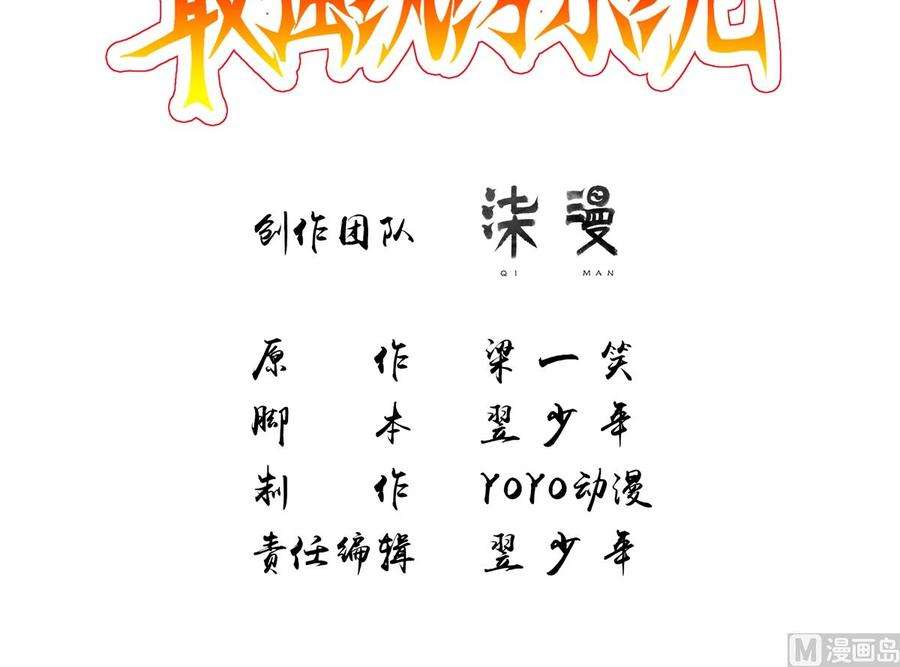 最强流氓系统
创作团队 柒漫
QI MAN
原作 梁一笑
脚本 翌少年
制作 YOYO动漫
责任编辑 翌少年
M漫画岛